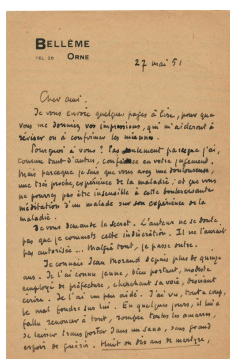 BELLÊME
TEL 26 ORNE
27 mai 51
Cher ami
Je vous envoie quelques pages à lire, pour que
vous me donniez vos impressions, qui m'aideront à
réviser ou à confirmer les miennes.
Pourquoi à vous ? Pas seulement parce que j'ai,
comme tant d'autres, confiance en votre jugement.
Mais parce que je sais que vous avez une douloureuse,
une très proche expérience de la maladie, et que vous
ne pourrez pas être insensible à cette bouleversante
méditation d'un malade sur son expérience de la
maladie.
Je vous demande le secret. L'auteur ne se doute
pas que je commets cette indiscrétion. Il ne l'aurait
pas autorisée... Malgré tout, je passe outre.
Je connais Jean Morand depuis plus de quinze
ans. Je l'ai connu jeune, bien portant, modeste
employé de préfecture, cherchant sa voie, désirant
écrire. Je l'ai un peu aidé. J'ai vu, tout à coup,
le mal fondre sur lui. En quelques jours, il lui a
fallu renoncer à tout, rompre toutes les amarres,
se laisser transporter dans un sana, sans grand
espoir de guérir. Huit ou dix ans de martyre,